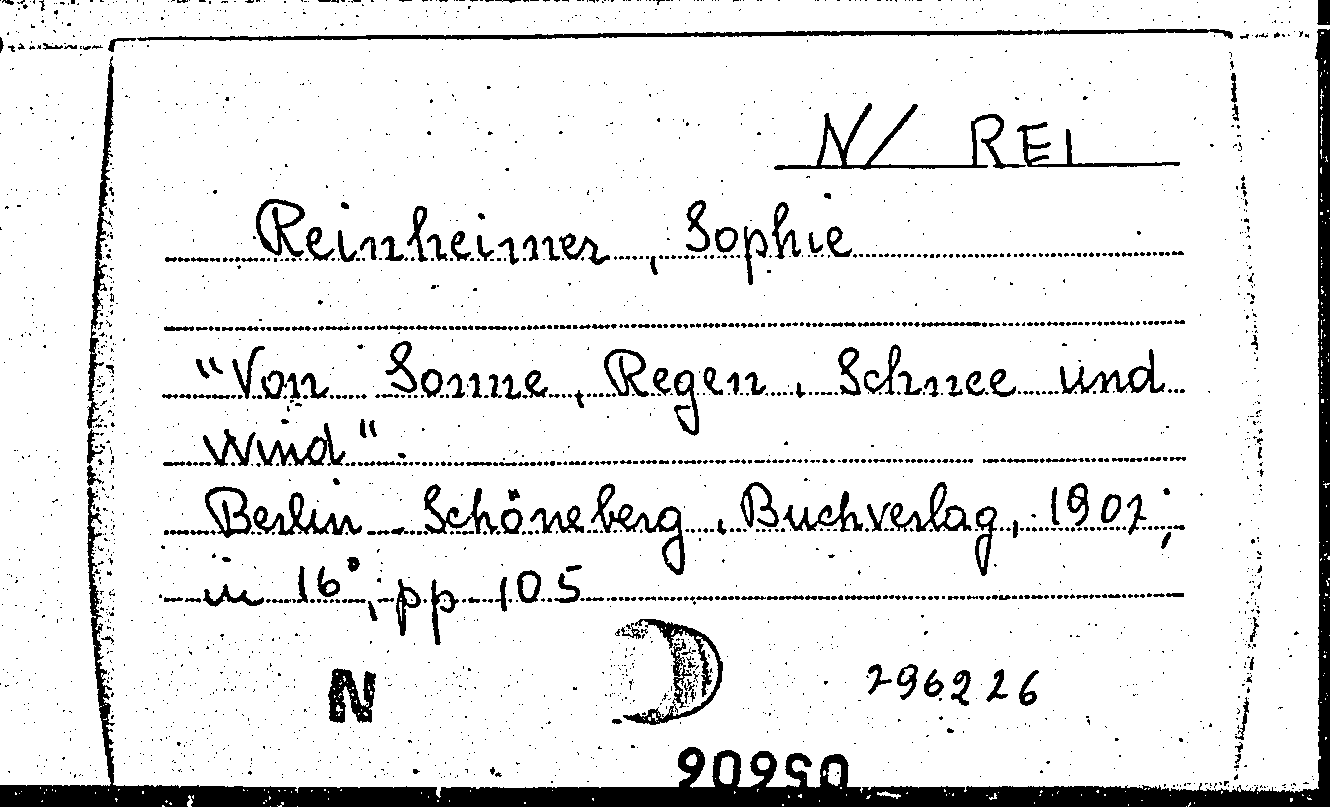 N/ REI
Reinheimer, Sophie
"Von Sonne, Regen, Schnee und
Wind".
Berlin-Schöneberg, Buchverlag, 1907;
in 16°; pp 105
N
296226